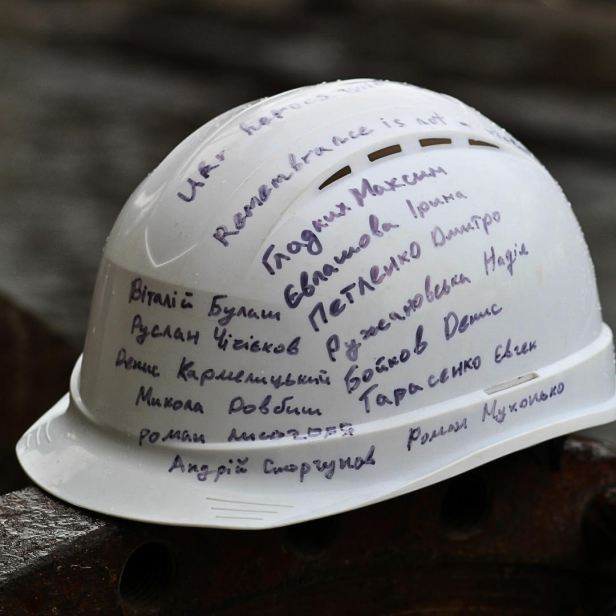 UKr heroes
Remembrance is not a
Гладких Максим
Євлашова Ірина
Петленко Дмитро
Ружановська Надія
Бойков Денис
Тарасенко Євген
Роман Муконько
Віталій Булаш
Руслан Чічієков
Денис Кармелицький
Микола Довбиш
Роман
Андрій Сторчунов